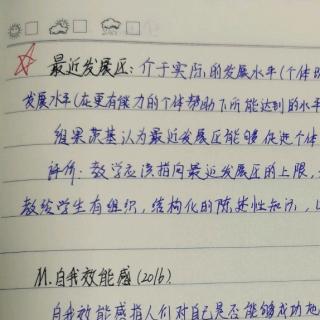 最近发展区：介于实际的发展水平（个体
发展水平（在更有能力的个体帮助下所能达到的水平
维果茨基认为最近发展区能够促进个体
评价：教学应该指向最近发展区的上限，
教给学生有组织，结构化的陈述性知识，以
M.自我效能感（2016）.
自我效能感指人们对自己是否能够成功地